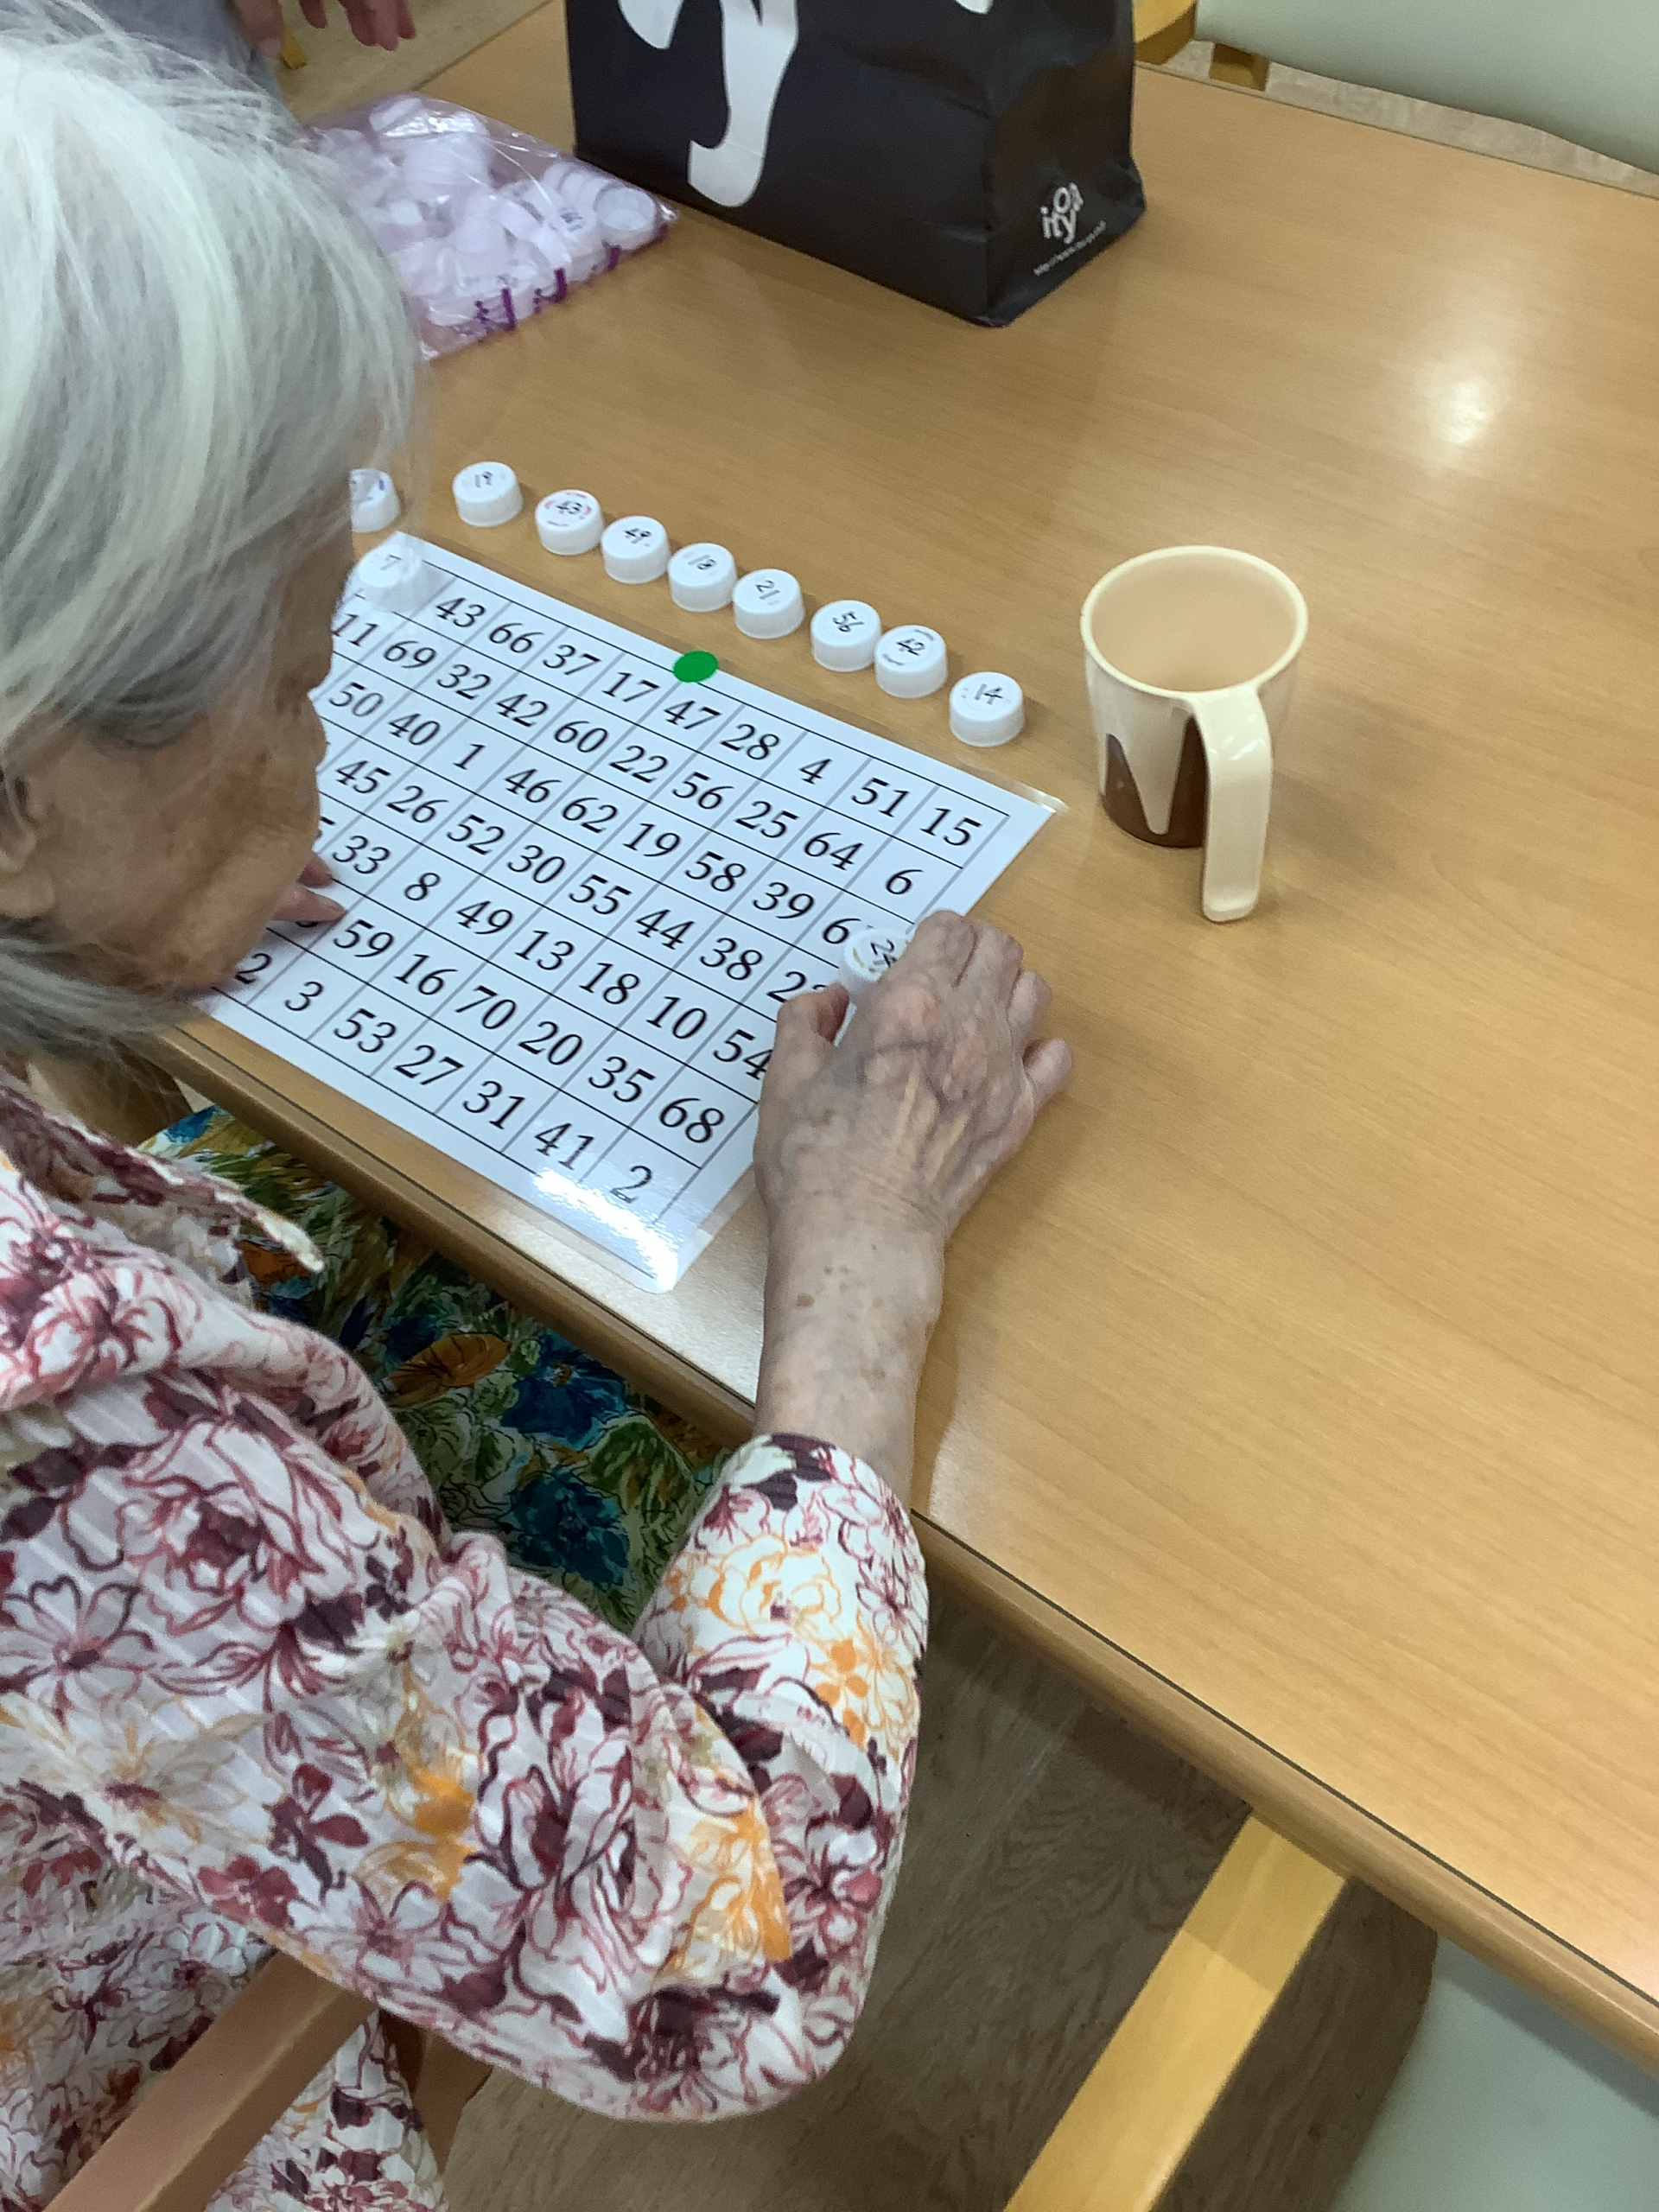 itoya
19 43 49 18 21 56 42 14
7 43 66 37 17 47 28 4 51 15
11 69 32 42 60 22 56 25 64 6
50 40 1 46 62 19 58 39
45 26 52 30 55 44 38
33 8 49 13 18 10 54
59 16 70 20 35 68
3 53 27 31 41 2